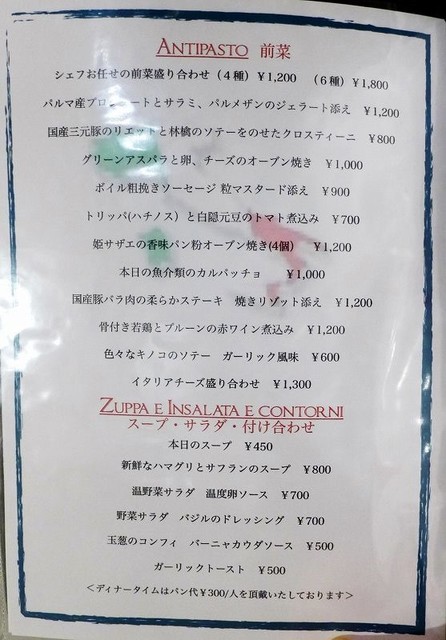 ANTIPASTO 前菜
シェフお任せの前菜盛り合わせ（４種）￥1,200　（６種）￥1,800
パルマ産プロシュートとサラミ、パルメザンのジェラート添え　￥1,200
国産三元豚のリエットと林檎のソテーをのせたクロスティーニ　￥800
グリーンアスパラと卵、チーズのオーブン焼き　￥1,000
ボイル粗挽きソーセージ 粒マスタード添え　￥900
トリッパ(ハチノス）と白隠元豆のトマト煮込み　￥700
姫サザエの香味パン粉オーブン焼き(4個）　￥1,200
本日の魚介類のカルパッチョ　￥1,000
国産豚バラ肉の柔らかステーキ　焼きリゾット添え　￥1,200
骨付き若鶏とプルーンの赤ワイン煮込み　￥1,200
色々なキノコのソテー　ガーリック風味　￥600
イタリアチーズ盛り合わせ　￥1,300
ZUPPA E INSALATA E CONTORNI
スープ・サラダ・付け合わせ
本日のスープ　￥450
新鮮なハマグリとサフランのスープ　￥800
温野菜サラダ　温度卵ソース　￥700
野菜サラダ　バジルのドレッシング　￥700
玉葱のコンフィ　バーニャカウダソース　￥500
ガーリックトースト　￥500
＜ディナータイムはパン代￥300/人を頂戴いたしております＞